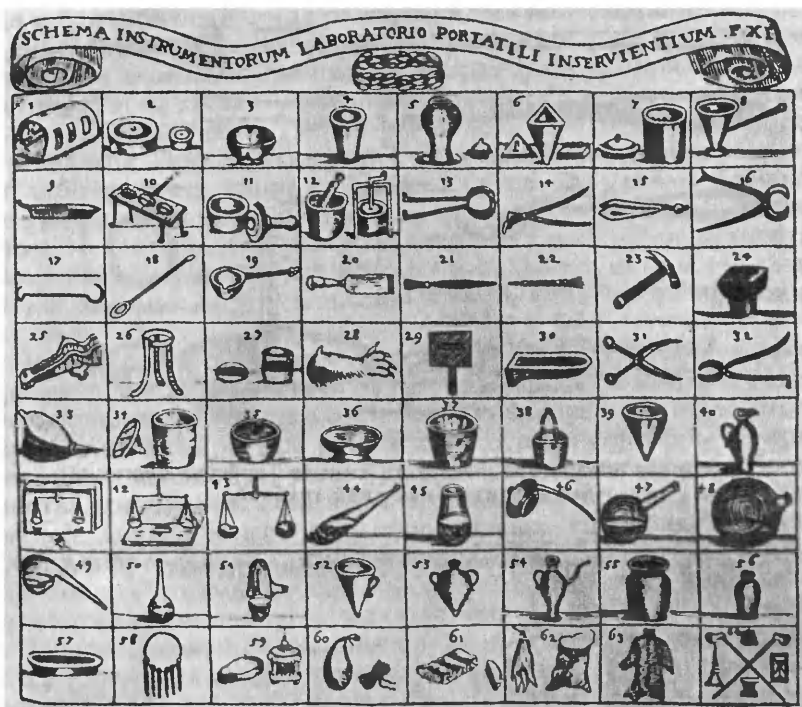 SCHEMA INSTRUMENTORUM LABORATORIO PORTATILI INSERVIENTIUM .F.XI
1 2 3 4 5 6 7 8
9 10 11 12 13 14 15 16
17 18 19 20 21 22 23 24
25 26 27 28 29 30 31 32
33 34 35 36 37 38 39 40
42 43 44 45 46 47 48
49 50 51 52 53 54 55 56
57 58 59 60 61 62 63